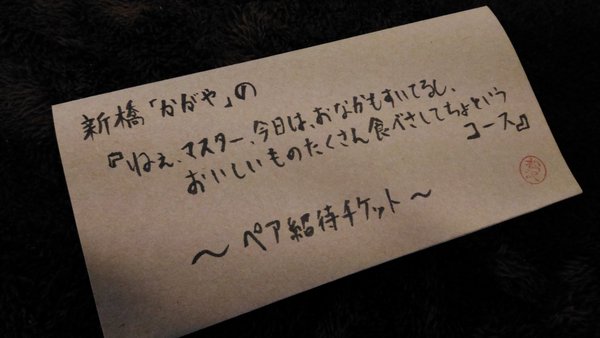 新橋「かがや」の
『ねえ、マスター、今日は、おなかもすいてるし、
おいしいものたくさん食べさしてちょという
コース』
～ペア招待チケット～